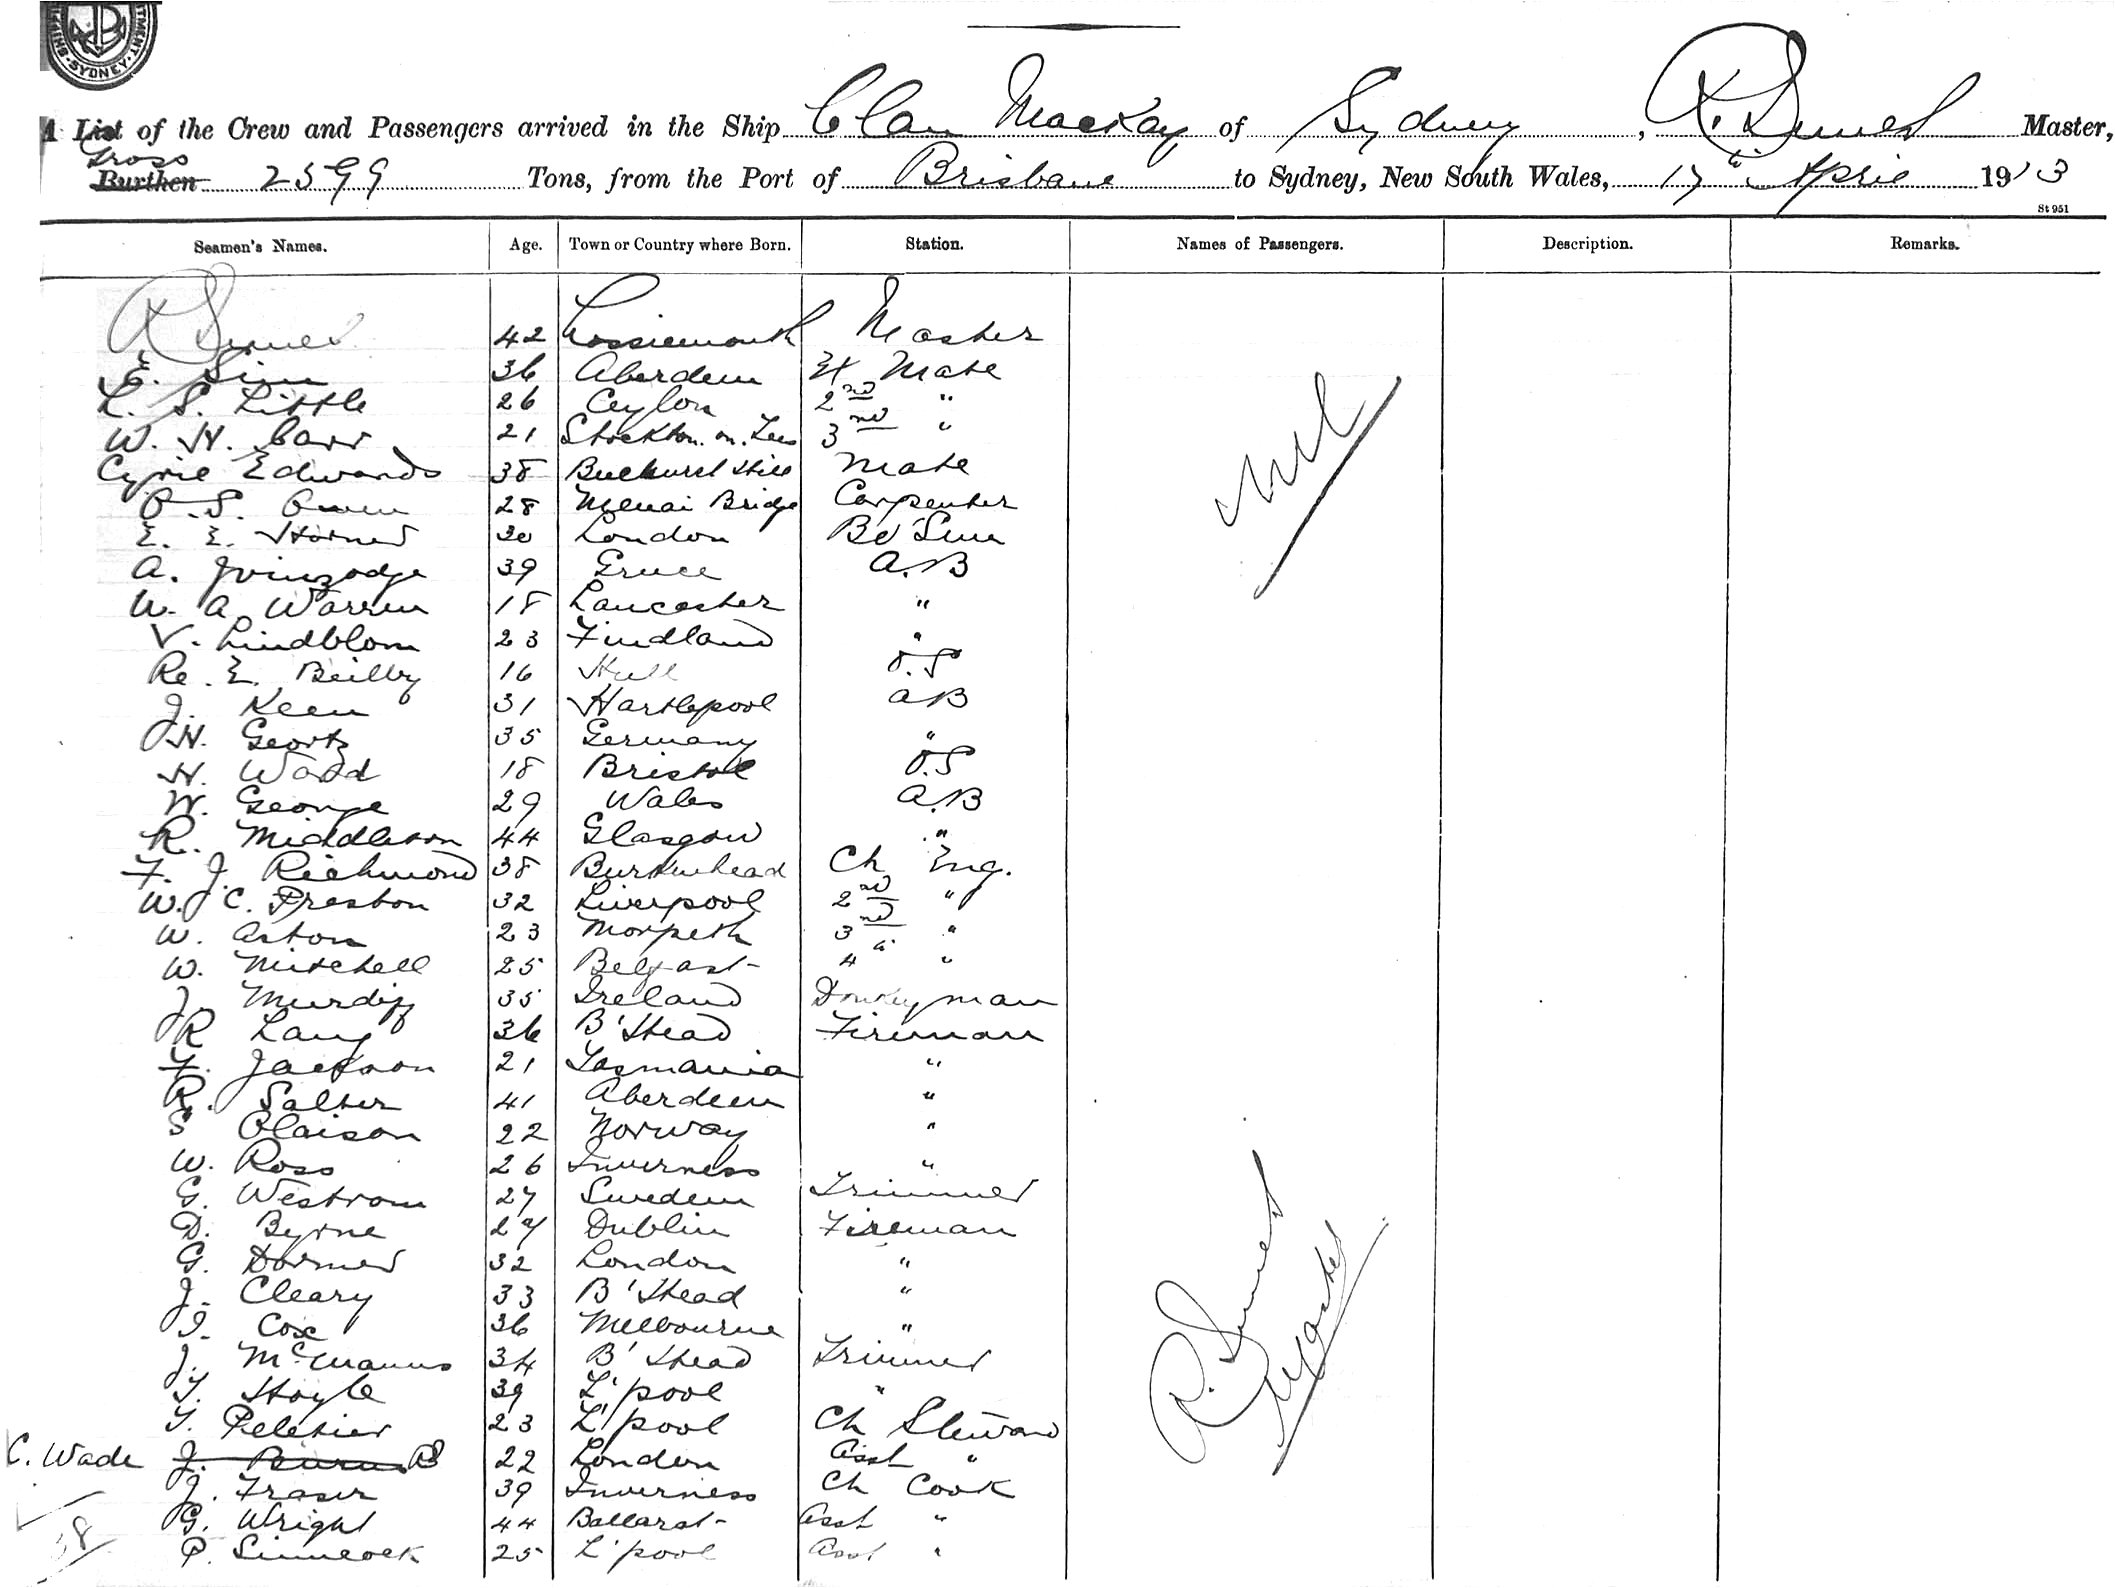 SHIPPING
TMENT
SYDNEY
A List of the Crew and Passengers arrived in the Ship Clan Mackay of Sydney, R. Master,
Gross
Burthen 2599 Tons, from the Port of Brisbane to Sydney, New South Wales, 17th April 1913
St 951
Seamen's Names. Age. Town or Country where Born. Station. Names of Passengers. Description. Remarks.
R 42 Lossiemouth Master
E. Sim 36 Aberdeen Mate
L. S. Little 26 Ceylon 2nd "
W. H. Carr 21 Stockton. on. Tees 3rd "
Cyril Edwards 38 Buckhurst Hill Mate
O. S. Owen 28 Menai Bridge Carpenter
E. E. Horner 30 London Bo'Sun
A. 39 A.B
W. A. Warren 18 Lancaster "
V. Lindblom 23 Findland "
Re. E. Beilby 16 Hull O.S
J. Keen 31 Hartlepool AB
H. Geortz 35 Germany "
H. Wadd 18 Bristol O.S
W. George 29 Wales A.B
R. Middleton 44 Glasgow "
F. J. Richmond 38 Burkenhead Ch Eng.
W. C. Preston 32 Liverpool 2nd "
W. Aston 23 Morpeth 3rd "
W. Mitchell 25 Belfast 4th "
J. Murdiff 35 Ireland Donkeyman
R Lang 36 B'Head Fireman
F. Jackson 21 Tasmania "
R. Salter 41 Aberdeen "
S Olaison 22 Norway "
W. Ross 26 Inverness "
G. Westrom 27 Sweden Trimmer
D. Byrne 29 Dublin Fireman
G. Dormer 32 London "
J. Cleary 33 B'Head "
I. Cox 36 Melbourne "
J. McManus 34 B'Head Trimmer
T. Hoyle 39 L'pool "
T. Peletier 23 L'pool Ch Steward
C. Wade J. RS 22 London Asst "
J. Fraser 39 Inverness Ch Cook
G. Wright 44 Ballarat Asst "
P. Sinncock 25 L'pool Asst "
Nil
R.
Master
38